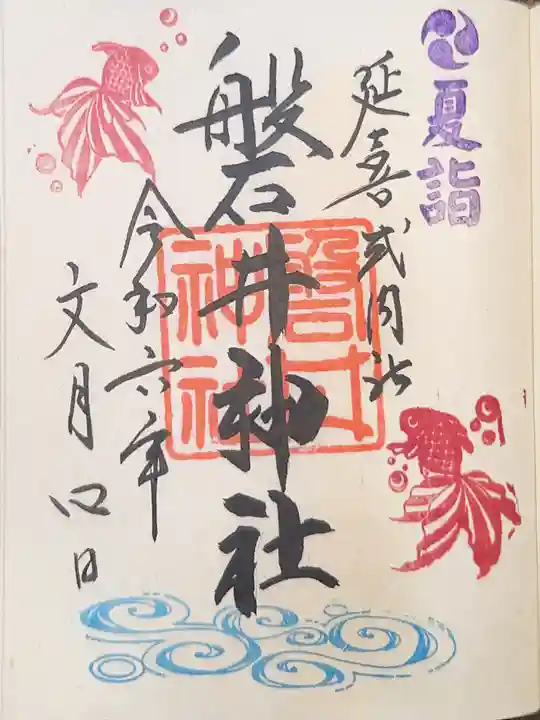 夏詣
延喜式内社
磐井神社
磐井
神社
令和六年
文月四日